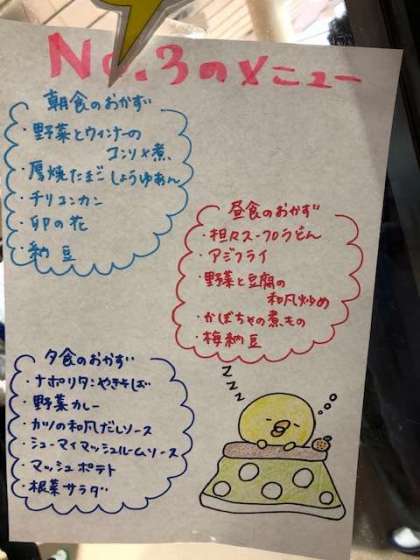 No.3のメニュー
朝食のおかず
・野菜とウィンナーの
コンソメ煮
・厚焼たまごしょうゆあん
・チリコンカン
・卯の花
・納豆
昼食のおかず
・担々スープうどん
・アジフライ
・野菜と豆腐の
和風炒め
・かぼちゃの煮もの
・梅納豆
夕食のおかず
・ナポリタンやきそば
・野菜カレー
・カツの和風だしソース
・シューマイマッシュルームソース
・マッシュポテト
・根菜サラダ
ZZZ